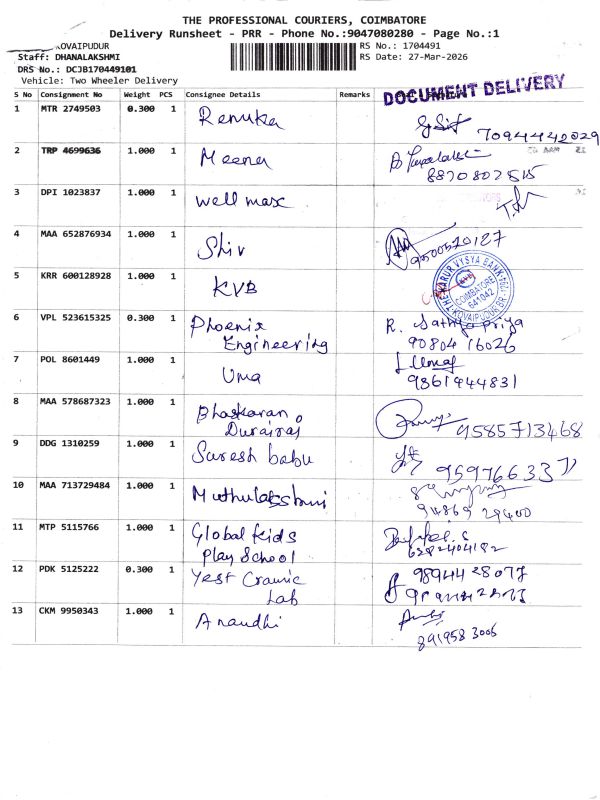 THE PROFESSIONAL COURIERS, COIMBATORE
Delivery Runsheet - PRR - Phone No.:9047080280 - Page No.:1
KOVAIPUDUR
RS No.: 1704491
Staff: DHANALAKSHMI
RS Date: 27-Mar-2026
DRS No.: DCJB170449101
Vehicle: Two Wheeler Delivery
DOCUMENT DELIVERY
S No Consignment No Weight PCS Consignee Details Remarks
1 MTR 2749503 0.300 1 Renuka 7094442029
2 TRP 4699636 1.000 1 Meena
3 DPI 1023837 1.000 1 Well max
4 MAA 652876934 1.000 1 Shiv 9500520127
5 KRR 600128928 1.000 1 KVB
THE KARUR VYSYA BANK LTD
KOVAIPUDUR BR.
COIMBATORE
641042
6 VPL 523615325 0.300 1 Phoenix R. Sathya priya
Engineering 90804 16026
7 POL 8601449 1.000 1 Uma 9361944831
8 MAA 578687323 1.000 1 Bhaskaran
Durairaj 9585713468
9 DDG 1310259 1.000 1 Suresh babu 9597663371
10 MAA 713729484 1.000 1 Muthulakshmi 94869 29400
11 MTP 5115766 1.000 1 Global Kids
Play School 6282404182
12 PDK 5125222 0.300 1 Yest Cramic 9894428077
Lab
13 CKM 9950343 1.000 1 Anandhi
8919583006